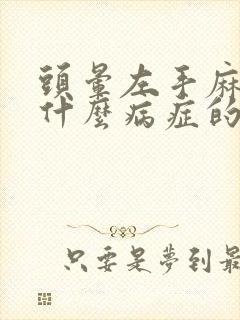 頭暈左手麻
什麼病症的
只要是夢到最